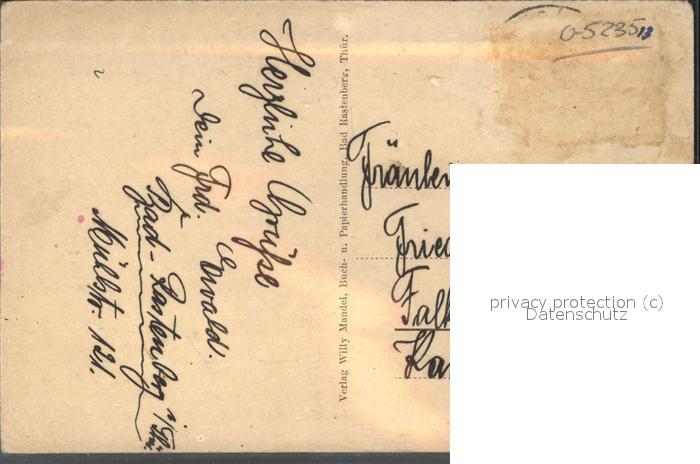 Herzliche Grüße
Dein Frd. Ewald.
Bad-Rastenberg i/Thür.
Mühlstr. 131.
Verlag Willy Mandel, Buch- u. Papierhandlung, Bad Rastenberg, Thür.
0-5235
Fräulein
Fried
Falk
Ka
privacy protection (c)
Datenschutz